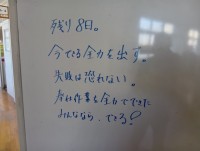 残り8日。
今できる全力を出す。
失敗は恐れない。
作業を全力でできた
みんななら、できる!